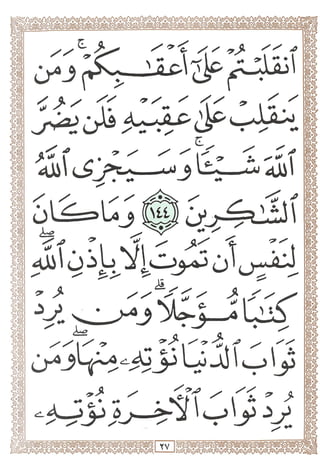 ٱنقَلَبْتُمْ عَلَىٰٓ أَعْقَـٰبِكُمْ ۚ وَمَن
يَنقَلِبْ عَلَىٰ عَقِبَيْهِ فَلَن يَضُرَّ
ٱللَّهَ شَيْـًٔا ۗ وَسَيَجْزِى ٱللَّهُ
ٱلشَّـٰكِرِينَ ١٤٤ وَمَا كَانَ
لِنَفْسٍ أَن تَمُوتَ إِلَّا بِإِذْنِ ٱللَّهِ
كِتَـٰبًا مُّؤَجَّلًا ۗ وَمَن يُرِدْ
ثَوَابَ ٱلدُّنْيَا نُؤْتِهِۦ مِنْهَا ۖ وَمَن
يُرِدْ ثَوَابَ ٱلْـَٔاخِرَةِ نُؤْتِهِۦ
٢٧